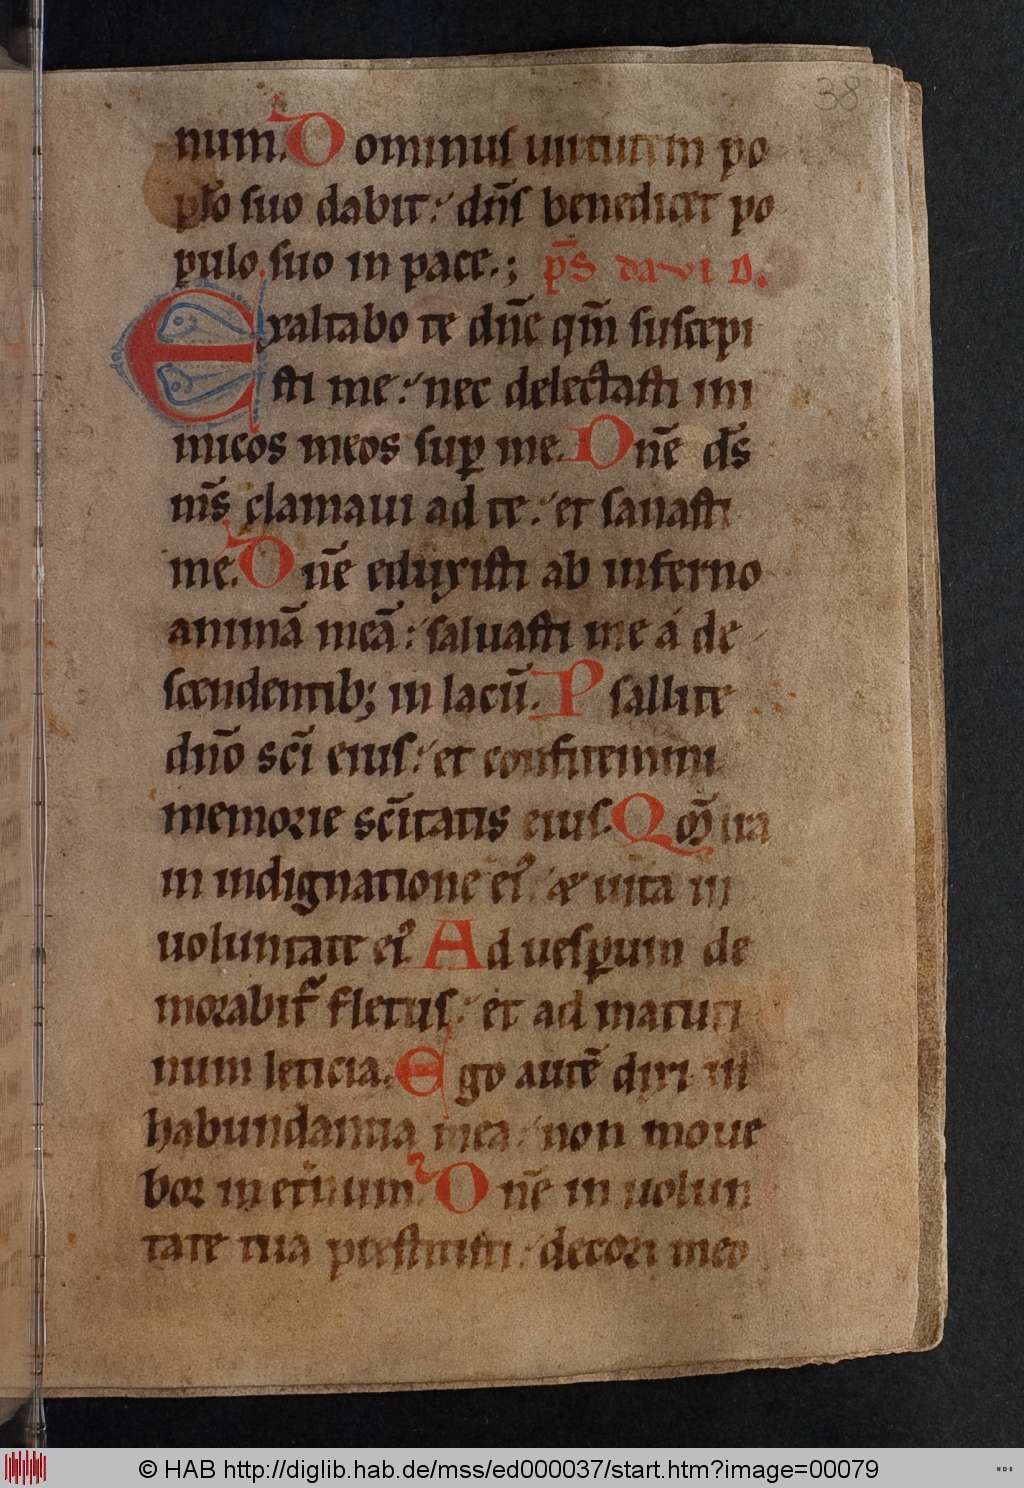 38
num. Dominus uirtutem po
pło suo dabit: dn̄s benedicet po
pulo suo in pace.; p̄s daviD.
Exaltabo te dn̄e qm̄ suscepi
sti me: nec delectasti ini
micos meos sup̱ me. Dn̄e ds̄
ms̄ clamaui ad te: et sanasti
me. Dn̄e eduxisti ab inferno
animā meā: saluasti me á de
scendentib; in lacū. Psallite
dn̄o sc̄i eius: et confitemini
memorie sc̄itatis eius. Qm̄ ira
in indignatione ei᾿ æ uita in
uoluntate ei᾿. Ad uesp̱um de
morabit᷑ fletus: et ad matuti
num leticia. Ego autē dixi in
habundantia mea: non moue
bor in et̾num. Dn̄e in uolun
tate tua prestitisti: decori meo
© HAB http://diglib.hab.de/mss/ed000037/start.htm?image=00079